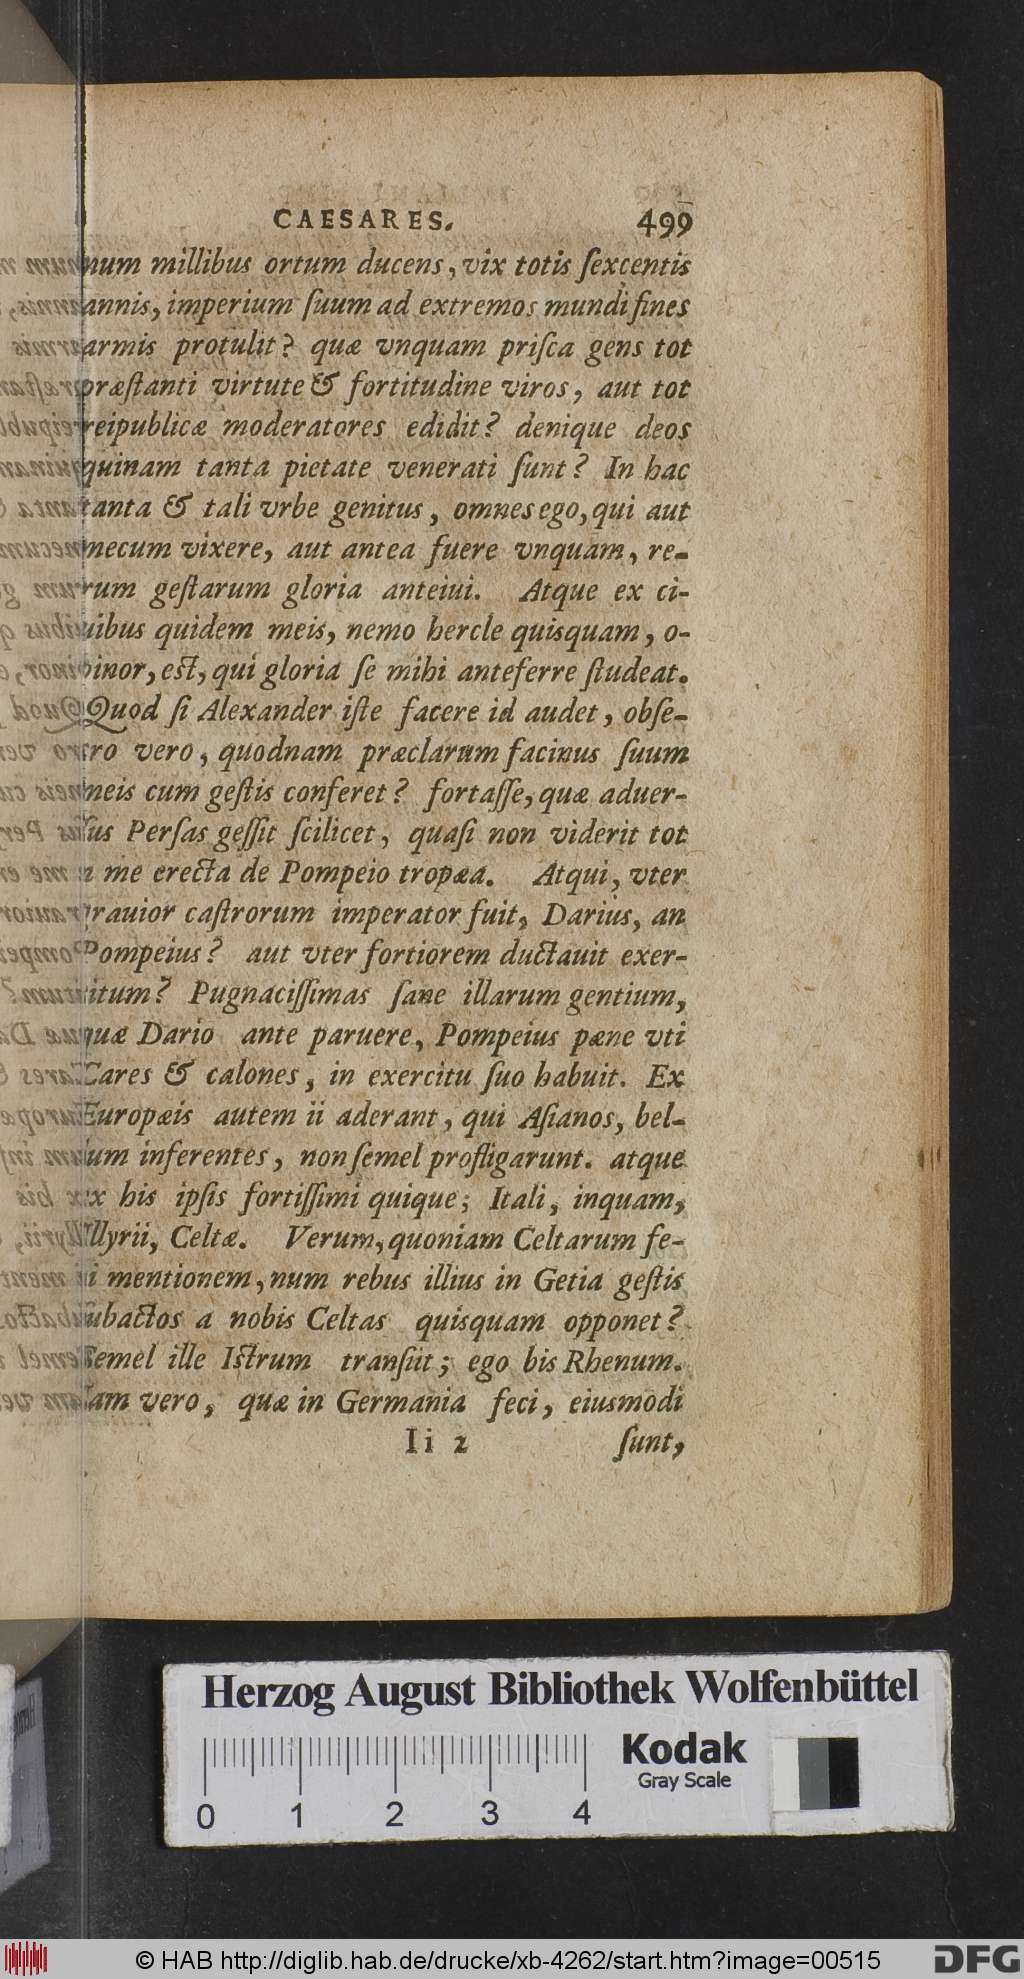 CAESARES. 499
num millibus ortum ducens, vix totis ſexcentis
annis, imperium ſuum ad extremos mundi fines
armis protulit? quæ vnquam priſca gens tot
præſtanti virtute & fortitudine viros, aut tot
reipublicæ moderatores edidit? denique deos
quinam tanta pietate venerati ſunt? In hac
tanta & tali vrbe genitus, omnes ego, qui aut
mecum vixere, aut antea fuere vnquam, re-
rum geſtarum gloria anteiui. Atque ex ci-
uibus quidem meis, nemo hercle quisquam, o-
pinor, est, qui gloria ſe mihi anteferre ſtudeat.
Quod ſi Alexander iſte facere id audet, obſe-
cro vero, quodnam præclarum facinus ſuum
meis cum geſtis conferet? fortaſſe, quæ aduer-
ſus Perſas geſſit ſcilicet, quaſi non viderit tot
a me erecta de Pompeio tropæa. Atqui, vter
grauior caſtrorum imperator fuit, Darius, an
Pompeius? aut vter fortiorem ductauit exer-
citum? Pugnaciſſimas ſane illarum gentium,
quæ Dario ante paruere, Pompeius pæne vti
Cares & calones, in exercitu ſuo habuit. Ex
Europæis autem ii aderant, qui Aſianos, bel-
lum inferentes, non ſemel profligarunt. atque
ex his ipſis fortiſſimi quique; Itali, inquam,
Illyrii, Celtæ. Verum, quoniam Celtarum fe-
ci mentionem, num rebus illius in Getia geſtis
ſubactos a nobis Celtas quisquam opponet?
Semel ille Istrum tranſiit; ego bis Rhenum.
Iam vero, quæ in Germania feci, eiusmodi
Ii 2 ſunt,
Herzog August Bibliothek Wolfenbüttel
Kodak
Gray Scale
0 1 2 3 4
© HAB http://diglib.hab.de/drucke/xb-4262/start.htm?image=00515
DFG